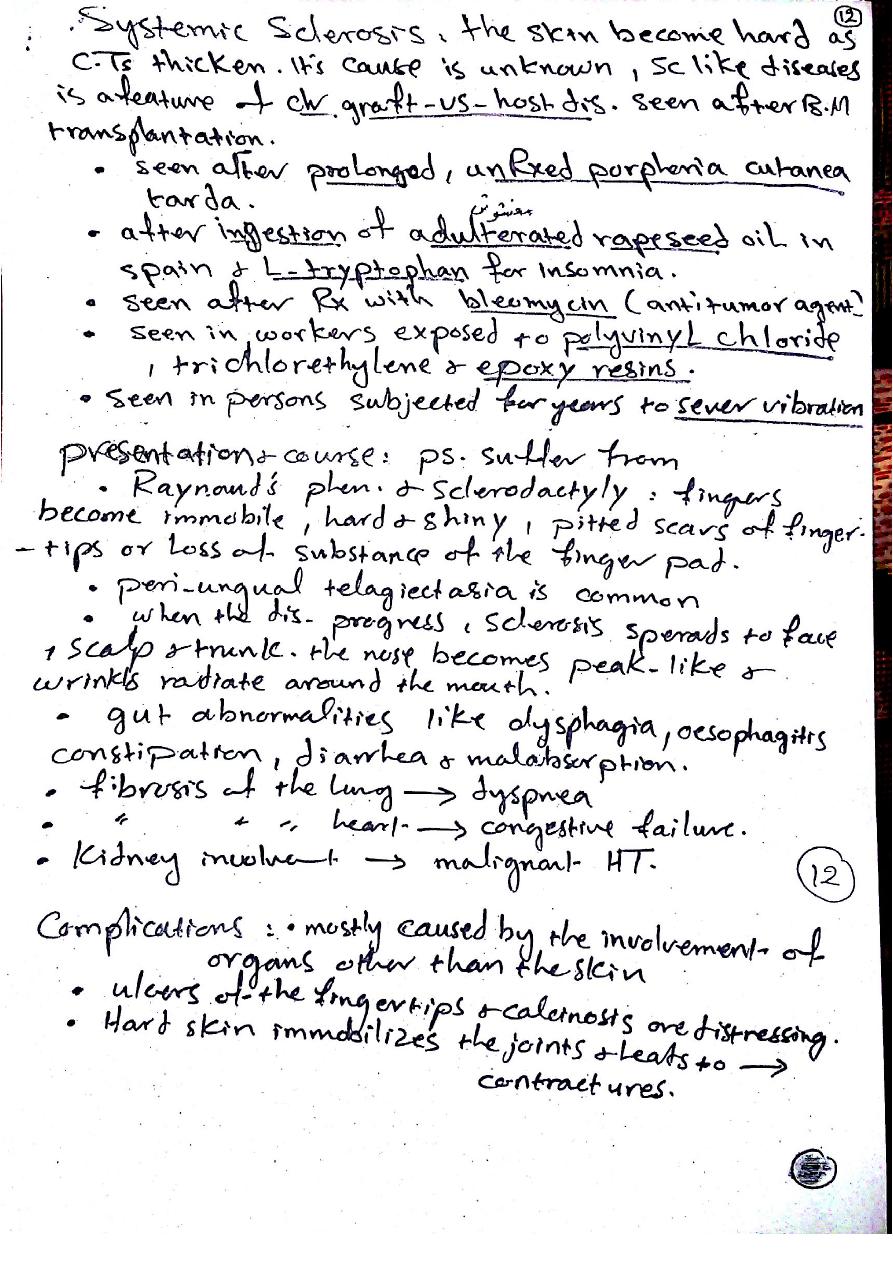 (12)
. Systemic Sclerosis, the skin become hard as
C.Ts thicken. It's cause is unknown, Sc like diseases
is a feature of ch. graft-vs-host dis. seen after B.M
transplantation.
• seen after prolonged, unRxed porpheria cutanea
tarda.
مغشوش
• after ingestion of adulterated rapeseed oil in
spain & L-tryptophan for insomnia.
• seen after Rx with bleomycin (antitumor agent)
• seen in workers exposed to polyvinyl chloride
, trichlorethylene & epoxy resins.
• seen in persons subjected for years to sever vibration
presentation & course: ps. suffer from
• Raynaud's phen. & sclerodactyly : fingers
become immobile, hard & shiny, pitted scars of finger-
-tips or loss of substance of the finger pad.
• peri-ungual telagiectasia is common
• when the dis- progress, sclerosis sperads to face
, scalp & trunk. the nose becomes peak-like &
wrinkls radiate around the mouth.
• gut abnormalities like dysphagia, oesophagitis
constipation, diarrhea & malabsorption.
• fibrosis of the lung → dyspnea
• " " " heart → congestive failure.
• Kidney involvent → malignant HT.
(12)
Complications : • mostly caused by the involvement of
organs other than the skin
• ulcers of the fingertips & calcinosis are distressing.
• Hard skin immobilizes the joints & leads to →
contractures.